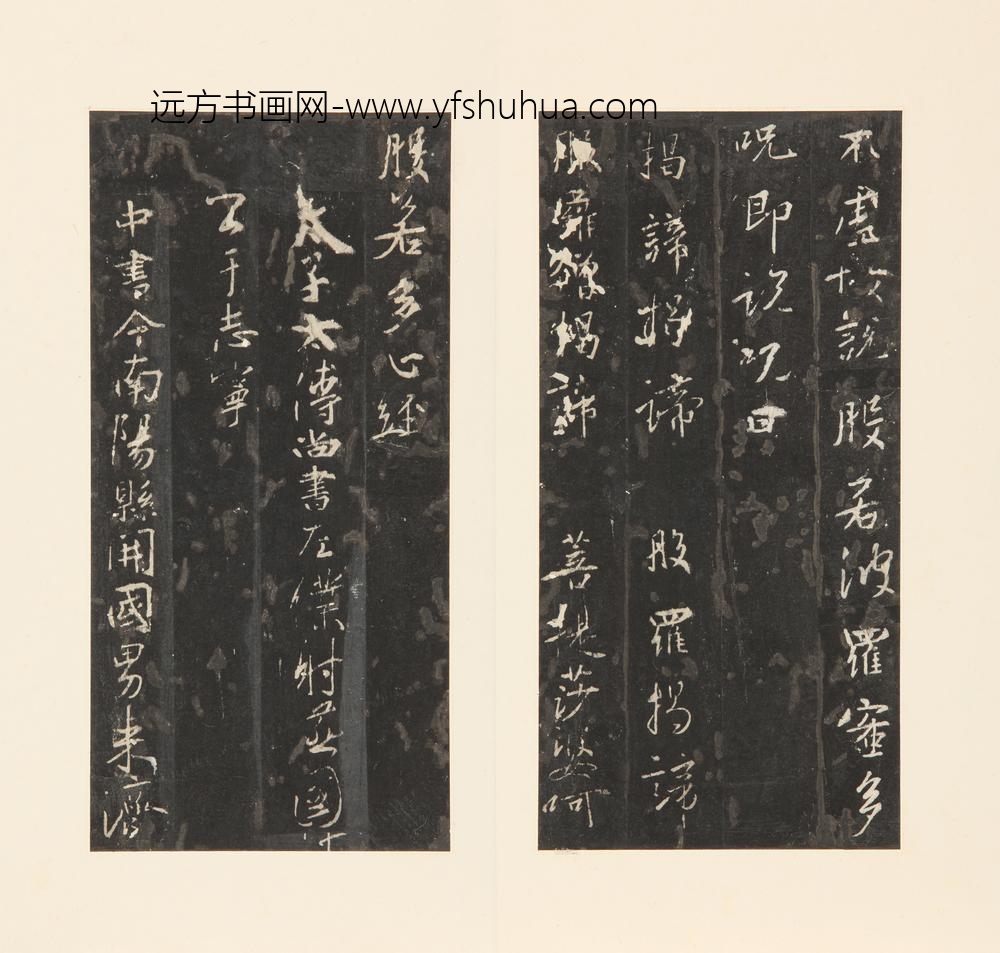 远方书画网-www.yfshuhua.com
不虚故説般若波羅蜜多
呪即説呪曰
揭諦揭諦 般羅揭諦
般羅僧揭諦 菩提莎婆呵
般若多心經
太子太傅尚書左僕射燕國
公于志寧
中書令南陽縣開國男来濟